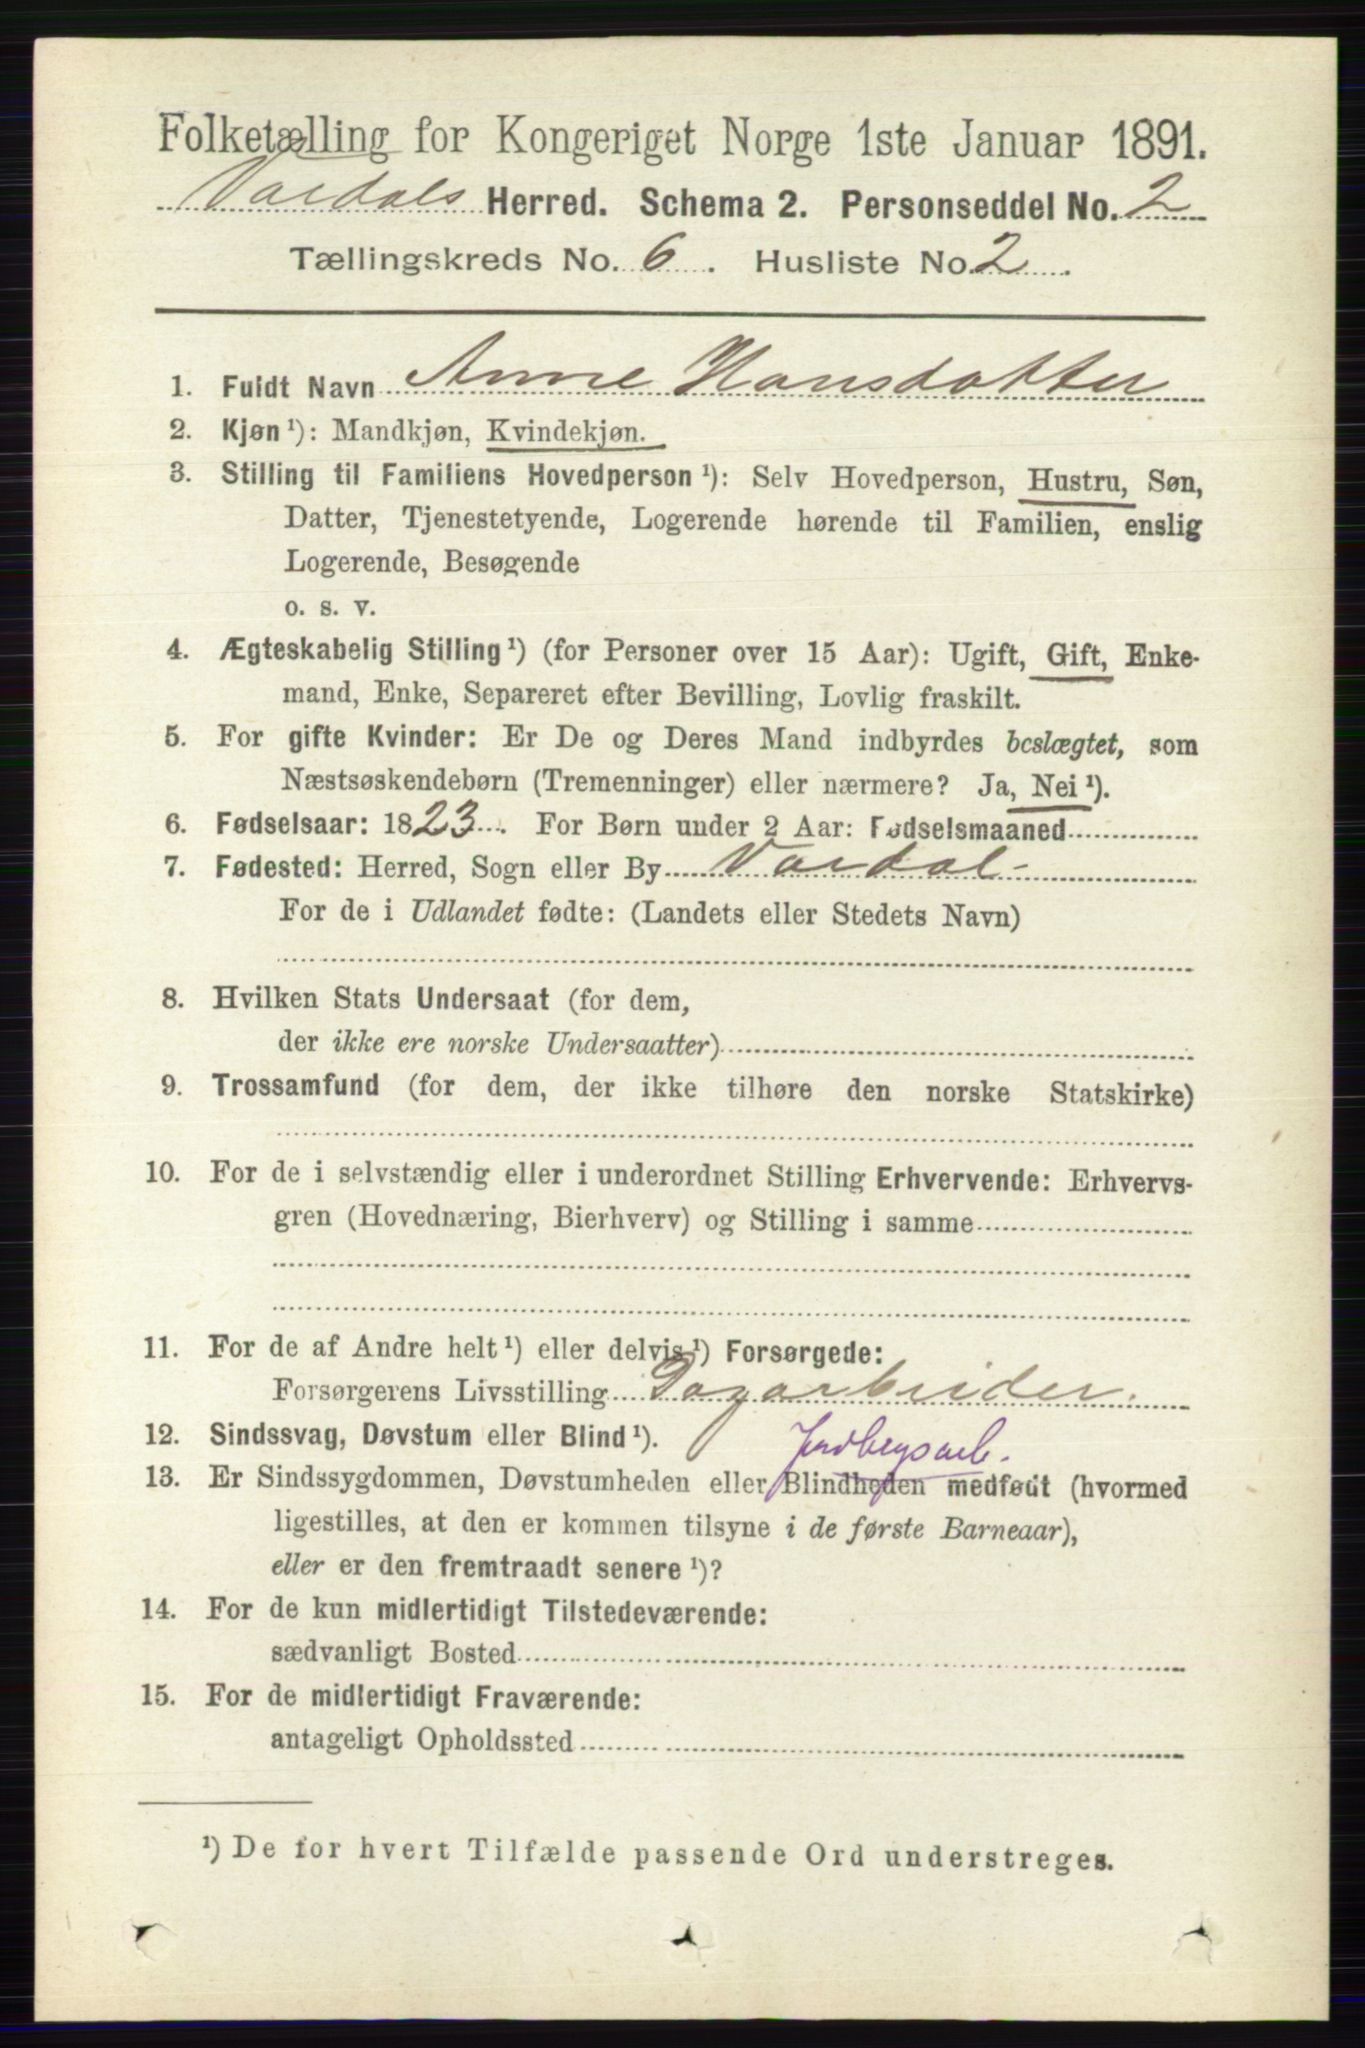 Folketælling for Kongeriget Norge 1ste Januar 1891.
Vardals Herred. Schema 2. Personseddel No. 2
Tællingskreds No. 6. Husliste No. 2.
1. Fuldt Navn Anne Hansdatter
2. Kjøn ¹): Mandkjøn, Kvindekjøn.
3. Stilling til Familiens Hovedperson ¹): Selv Hovedperson, Hustru, Søn,
Datter, Tjenestetyende, Logerende hørende til Familien, enslig
Logerende, Besøgende
o. s. v.
4. Ægteskabelig Stilling ¹) (for Personer over 15 Aar): Ugift, Gift, Enke-
mand, Enke, Separeret efter Bevilling, Lovlig fraskilt.
5. For gifte Kvinder: Er De og Deres Mand indbyrdes beslægtet, som
Næstsøskendebørn (Tremenninger) eller nærmere? Ja, Nei ¹).
6. Fødselsaar: 1823. For Børn under 2 Aar: Fødselsmaaned
7. Fødested: Herred, Sogn eller By Vardal
For de i Udlandet fødte: (Landets eller Stedets Navn)
8. Hvilken Stats Undersaat (for dem,
der ikke ere norske Undersaatter)
9. Trossamfund (for dem, der ikke tilhøre den norske Statskirke)
10. For de i selvstændig eller i underordnet Stilling Erhvervende: Erhvervs-
gren (Hovednæring, Bierhverv) og Stilling i samme
11. For de af Andre helt ¹) eller delvis ¹) Forsørgede:
Forsørgerens Livsstilling Dagarbeider.
12. Sindssvag, Døvstum eller Blind ¹). Jordbrugsarb.
13. Er Sindssygdommen, Døvstumheden eller Blindheden medfødt (hvormed
ligestilles, at den er kommen tilsyne i de første Barneaar),
eller er den fremtraadt senere ¹)?
14. For de kun midlertidigt Tilstedeværende:
sædvanligt Bosted
15. For de midlertidigt Fraværende:
antageligt Opholdssted
¹) De for hvert Tilfælde passende Ord understreges.